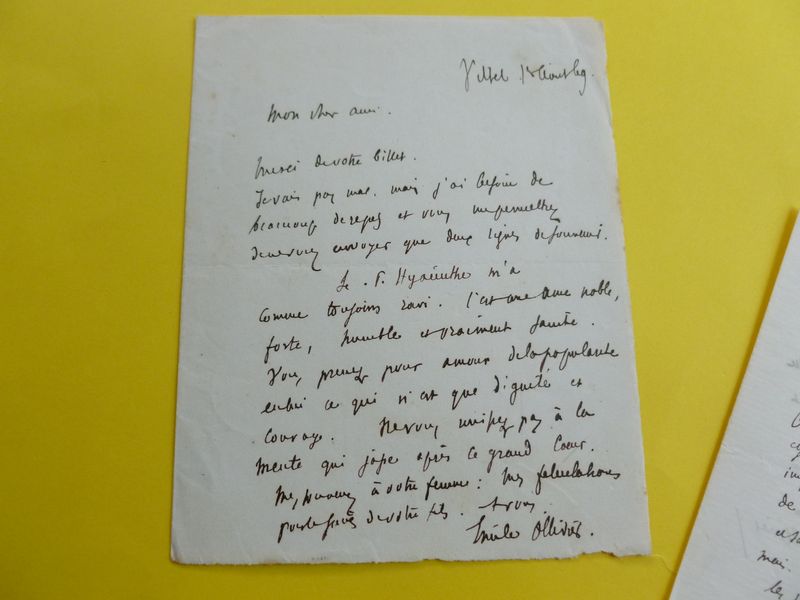 Vittel 18 Aout 69.
Mon cher ami.
Merci de votre billet.
Je vais pas mal. mais j'ai besoin de
beaucoup de repos et vous me permettrez
de ne vous envoyer que deux lignes de souvenir.
Le . P. Hyacinthe m'a
comme toujours ravi. C'est une âme noble,
forte, humble et vraiment sainte.
Vous prenez pour amour de la popularité
en lui ce qui n'est que dignité et
courage. Ne vous unissez pas à la
meute qui jape après ce grand Coeur.
Mes souvenirs à votre femme : Mes félicitations
pour le succès de votre fils. A vous
Emile Ollivier.
de
mais.
les